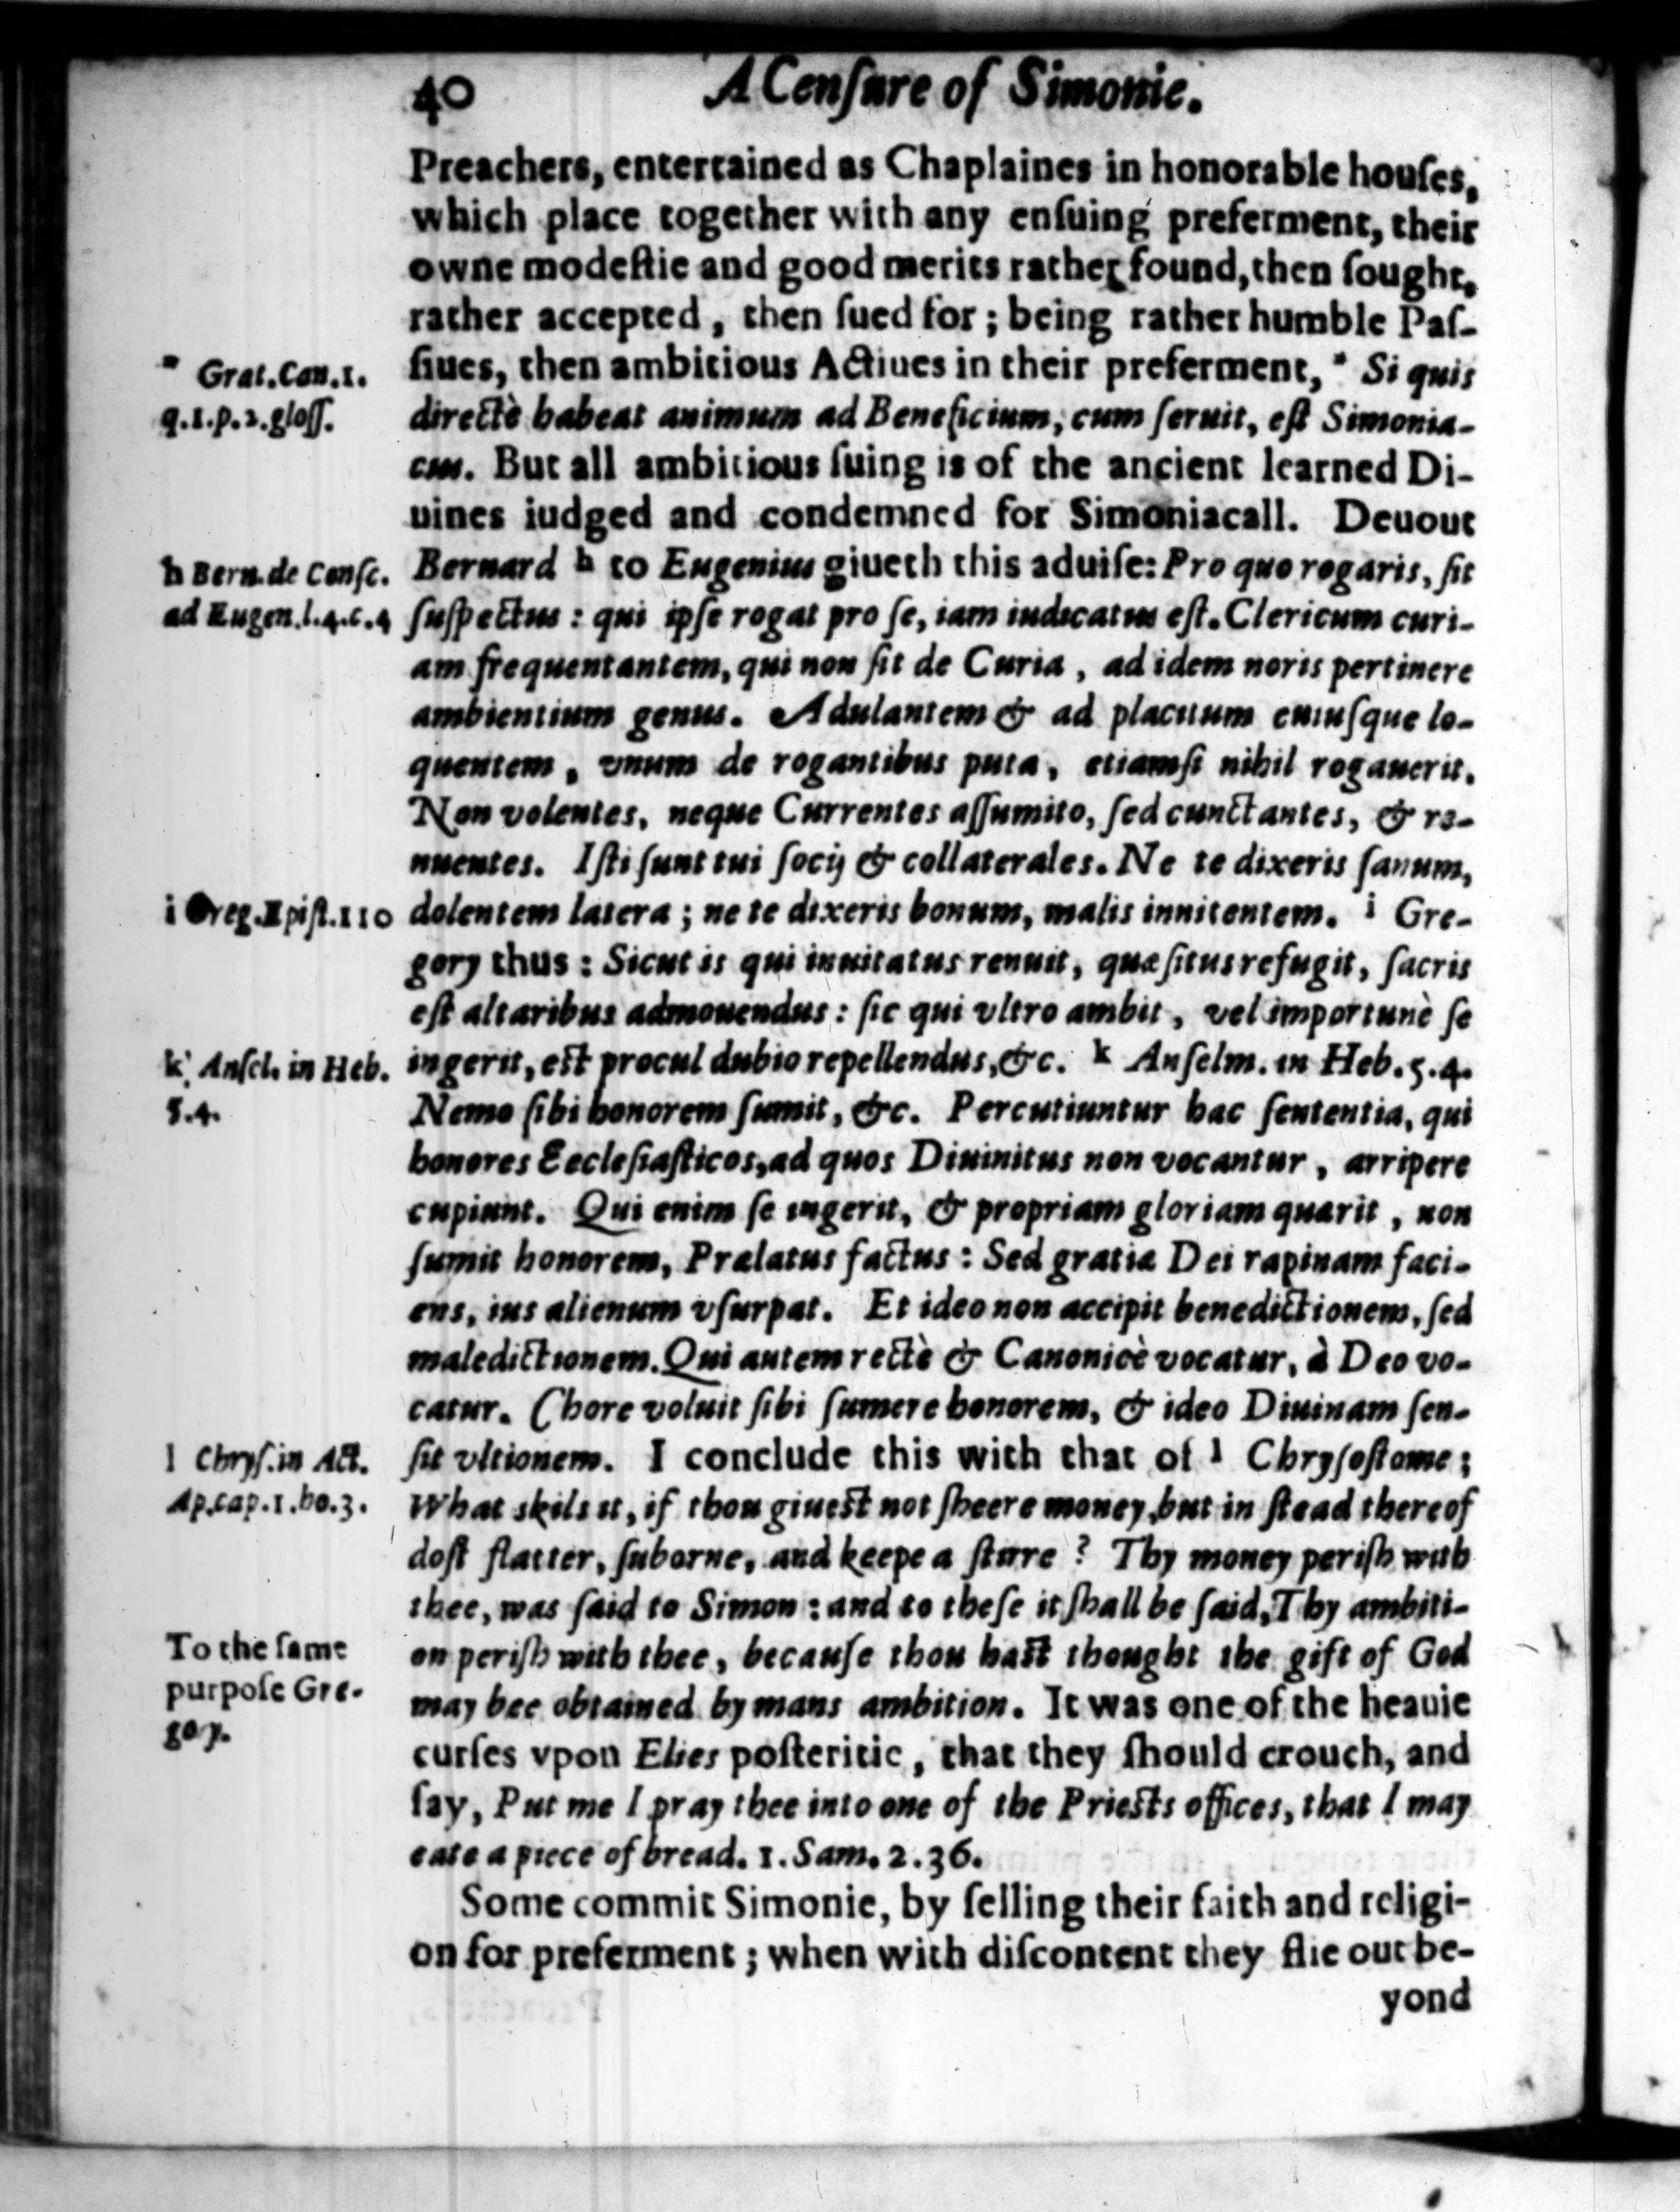 40 A Cenſure of Simonie.
Preachers, entertained as Chaplaines in honorable houſes,
which place together with any enſuing preferment, their
owne modeſtie and good merits rather found, then ſought,
rather accepted, then ſued for; being rather humble Paſ-
ſiues, then ambitious Actiues in their preferment, * Si quis
directè habeat animum ad Beneficium, cum ſeruit, eſt Simonia-
cus. But all ambitious ſuing is of the ancient learned Di-
uines iudged and condemned for Simoniacall. Deuout
Bernard h to Eugenius giueth this aduiſe: Pro quo rogaris, ſit
ſuſpectus: qui ipſe rogat pro ſe, iam iudicatus eſt. Clericum curi-
am frequentantem, qui non ſit de Curia, ad idem noris pertinere
ambientium genus. Adulantem & ad placitum cuiuſque lo-
quentem, vnum de rogantibus puta, etiamſi nihil rogauerit.
Non volentes, neque Currentes aſſumito, ſed cunctantes, & re-
nuentes. Iſti ſunt tui ſocij & collaterales. Ne te dixeris ſanum,
dolentem latera; ne te dixeris bonum, malis innitentem. i Gre-
gory thus: Sicut is qui inuitatus renuit, quæſitus refugit, ſacris
eſt altaribus admouendus: ſic qui vltro ambit, vel importunè ſe
ingerit, eſt procul dubio repellendus, &c. k Anſelm. in Heb. 5.4.
Nemo ſibi honorem ſumit, &c. Percutiuntur hac ſententia, qui
honores Eccleſiaſticos, ad quos Diuinitus non vocantur, arripere
cupiunt. Qui enim ſe ingerit, & propriam gloriam quærit, non
ſumit honorem, Prælatus factus: Sed gratiæ Dei rapinam faci-
ens, ius alienum vſurpat. Et ideo non accipit benedictionem, ſed
maledictionem. Qui autem rectè & Canonicè vocatur, à Deo vo-
catur. Chore voluit ſibi ſumere honorem, & ideo Diuinam ſen-
ſit vltionem. I conclude this with that of l Chryſoſtome;
What skils it, if thou giueſt not ſheere money, but in ſtead thereof
doſt flatter, ſuborne, and keepe a ſtirre? Thy money periſh with
thee, was ſaid to Simon: and to theſe it ſhall be ſaid, Thy ambiti-
on periſh with thee, becauſe thou haſt thought the gift of God
may bee obtained by mans ambition. It was one of the heauie
curſes vpon Elies poſteritie, that they ſhould crouch, and
ſay, Put me I pray thee into one of the Prieſts offices, that I may
eate a piece of bread. 1. Sam. 2.36.
Some commit Simonie, by ſelling their faith and religi-
on for preferment; when with diſcontent they flie out be-
yond
* Grat. Can. 1.
q.1.p.2.gloſſ.
h Bern. de Conſc.
ad Eugen. l.4.c.4
i Greg. Epiſt. 110
k Anſel. in Heb.
5.4.
l Chryſ. in Act.
Ap. cap. 1. ho. 3.
To the ſame
purpoſe Gre-
gory.